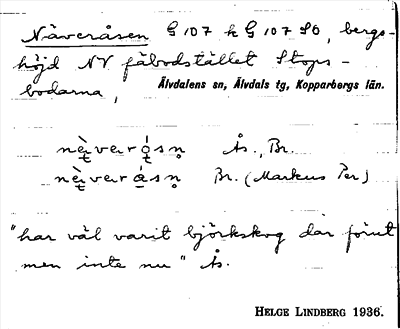 Näveråsen G 107 k G 107 SO, bergs-
höjd NV fäbodstället Stops-
bodarna, Älvdalens sn, Älvdals tg, Kopparbergs län.
Ås., Br.
Br. (Markus Per)
"har väl varit björkskog där förut
men inte nu" Ås.
HELGE LINDBERG 1936.